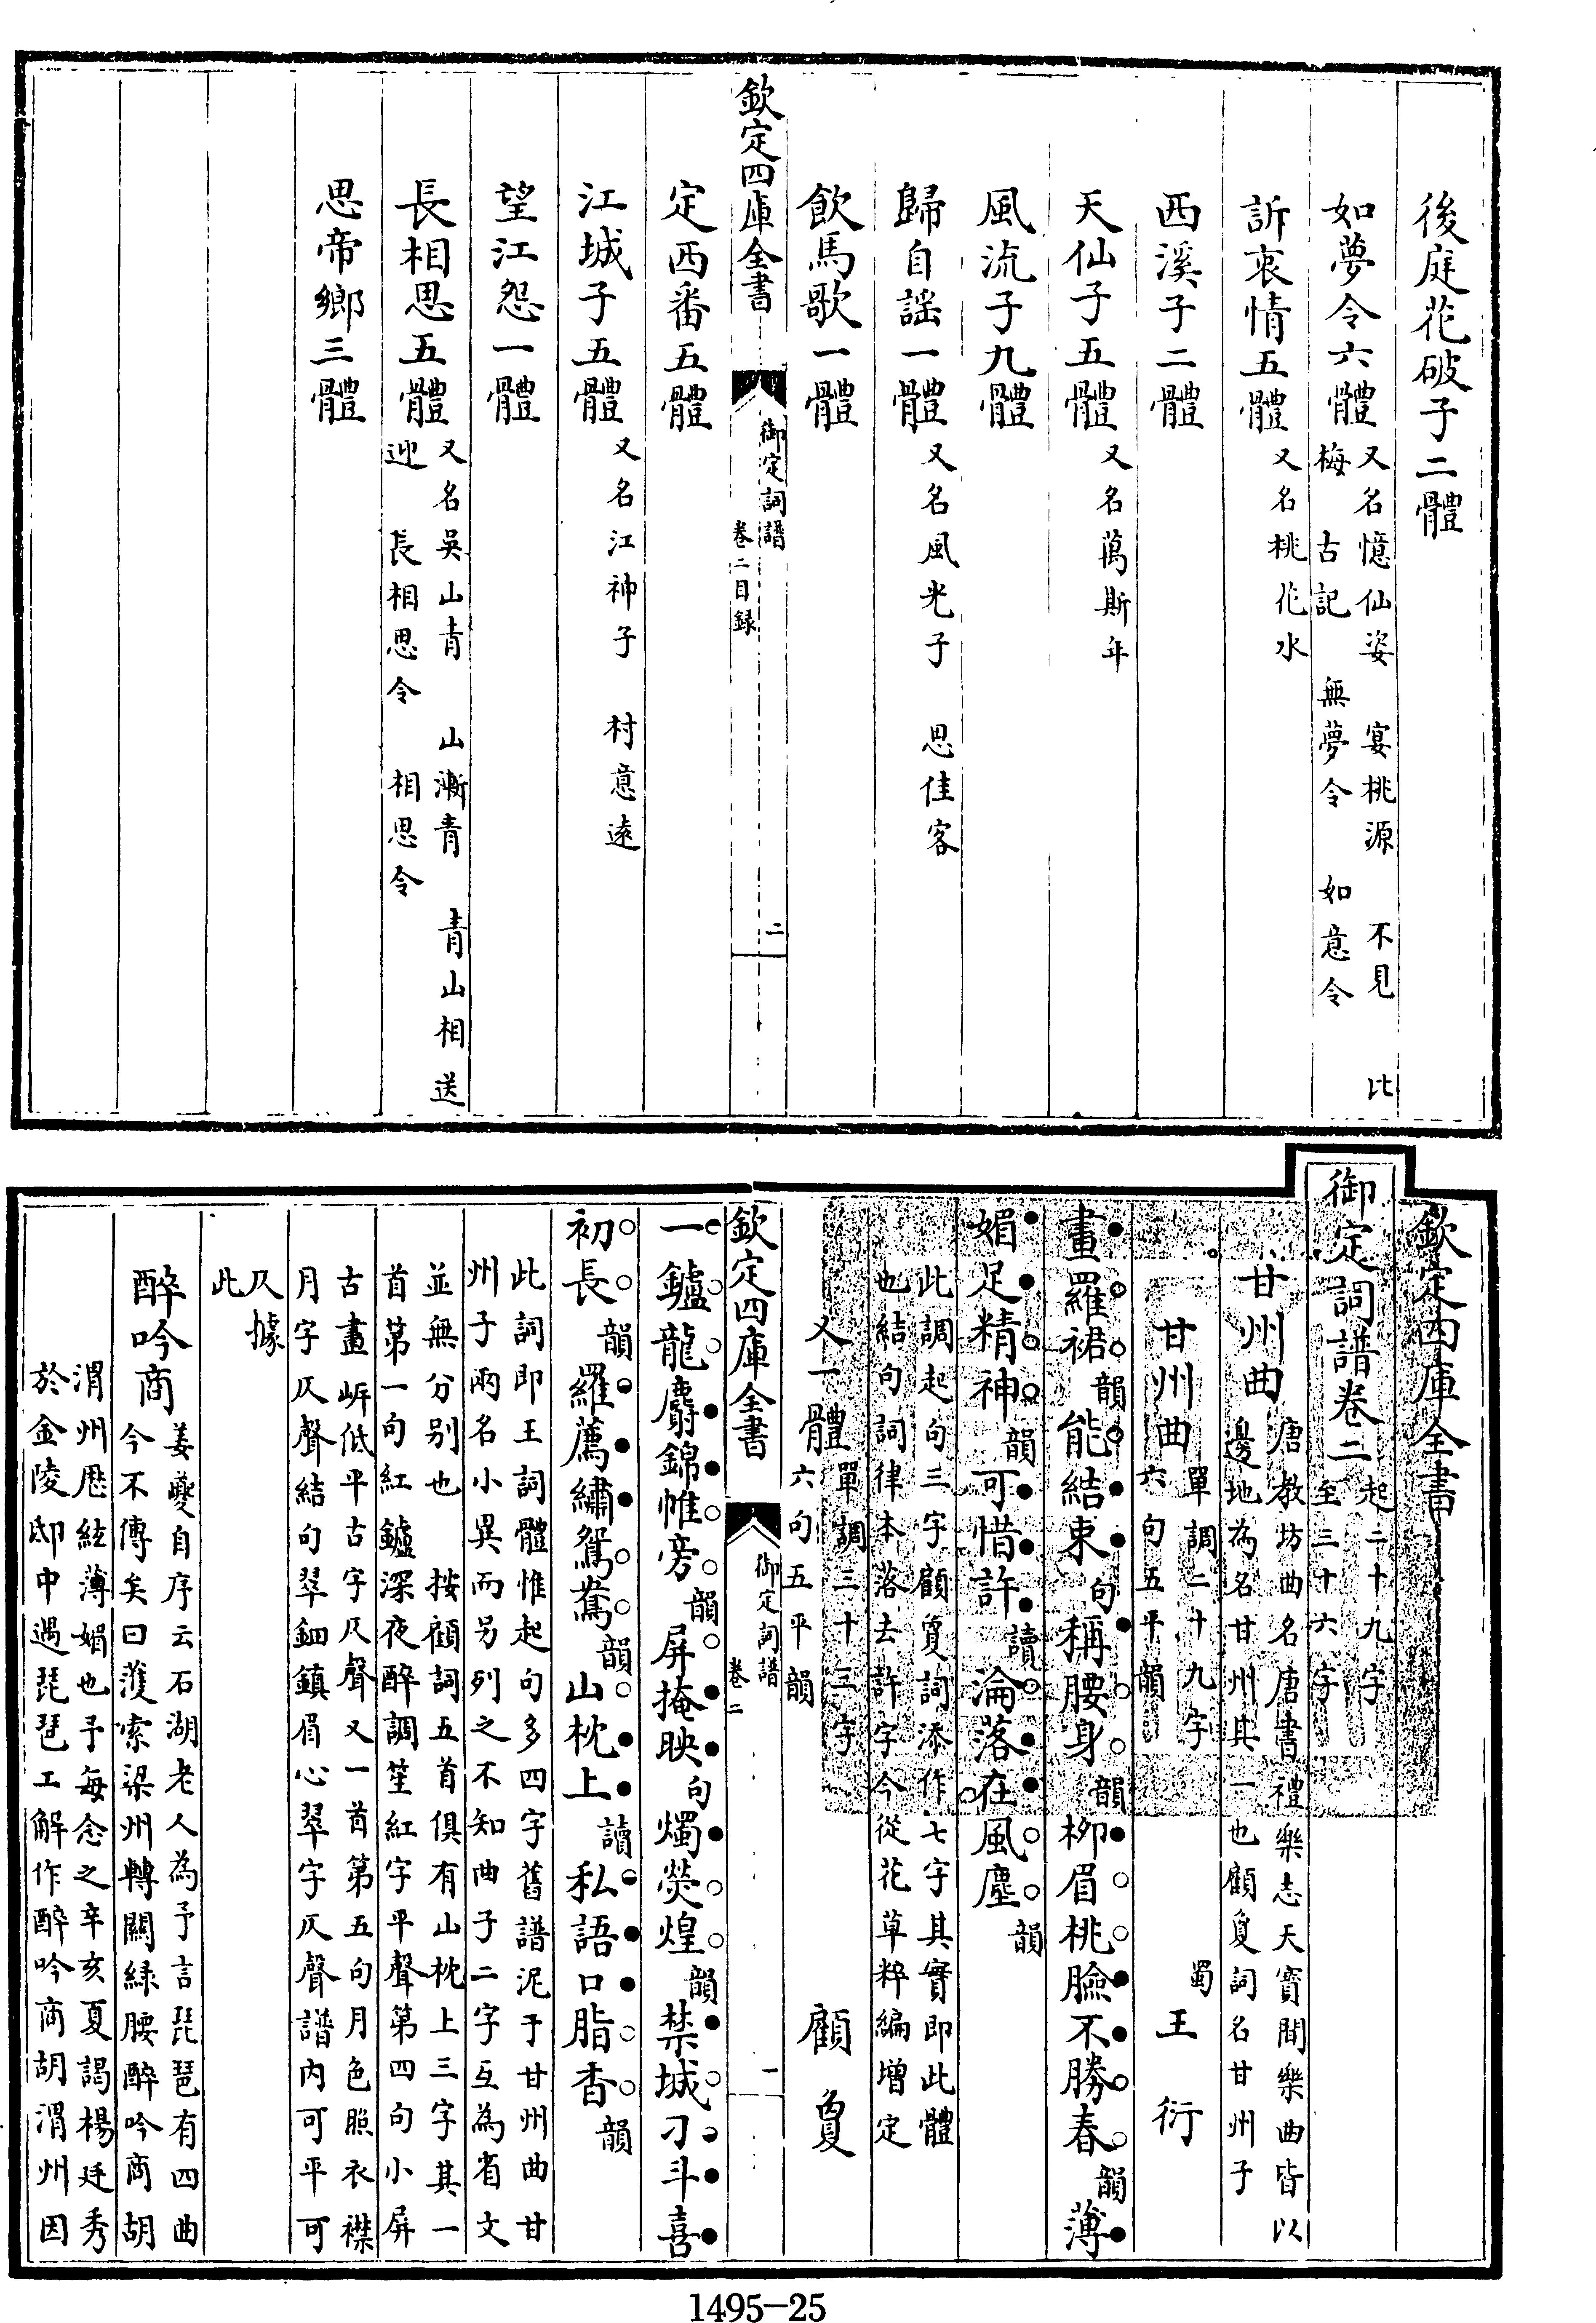 後庭花破子二體
如夢令六體又名憶仙姿　宴桃源　不見　比
梅　古記　無夢令　如意令
訴衷情五體又名桃花水
西溪子二體
天仙子五體又名萬斯年
風流子九體
歸自謡一體又名風光子　思佳客
飲馬歌一體
欽定四庫全書
御定詞譜
卷二目録
二
定西番五體
江城子五體又名江神子　村意遠
望江怨一體
長相思五體又名吳山青　山漸青　青山相送
迎　長相思令　相思令
思帝鄉三體
欽定四庫全書
御定詞譜卷二起二十九字
至三十六字
甘州曲唐教坊曲名唐書禮樂志天寳間樂曲皆以
邊地為名甘州其一也顧夐詞名甘州子
甘州曲單調二十九字
六句五平韻
蜀王衍
畫羅裙韻能結束句稱腰身韻柳眉桃臉不勝春韻薄
媚足精神韻可惜許讀淪落在風塵韻
此調起句三字顧夐詞添作七字其實即此體
也結句詞律本落去許字今從花草粹編增定
又一體單調三十三字
六句五平韻
顧夐
欽定四庫全書
御定詞譜
卷二
一
一鑪龍麝錦帷旁韻屏掩映句燭熒煌韻禁城刁斗喜
初長韻羅薦繡鴛鴦韻山枕上讀私語口脂香韻
此詞即王詞體惟起句多四字舊譜泥于甘州曲甘
州子兩名小異而另列之不知曲子二字互為省文
並無分别也　按顧詞五首俱有山枕上三字其一
首第一句紅鑪深夜醉調笙紅字平聲第四句小屏
古畫岍低平古字仄聲又一首第五句月色照衣襟
月字仄聲結句翠鈿鎮眉心翠字仄聲譜内可平可
仄據
此
醉吟商姜夔自序云石湖老人為予言琵琶有四曲
今不傳矣曰濩索梁州轉關綠腰醉吟商胡
渭州厯絃薄媚也予每念之辛亥夏謁楊廷秀
於金陵邸中遇琵琶工解作醉吟商胡渭州因
1495-25